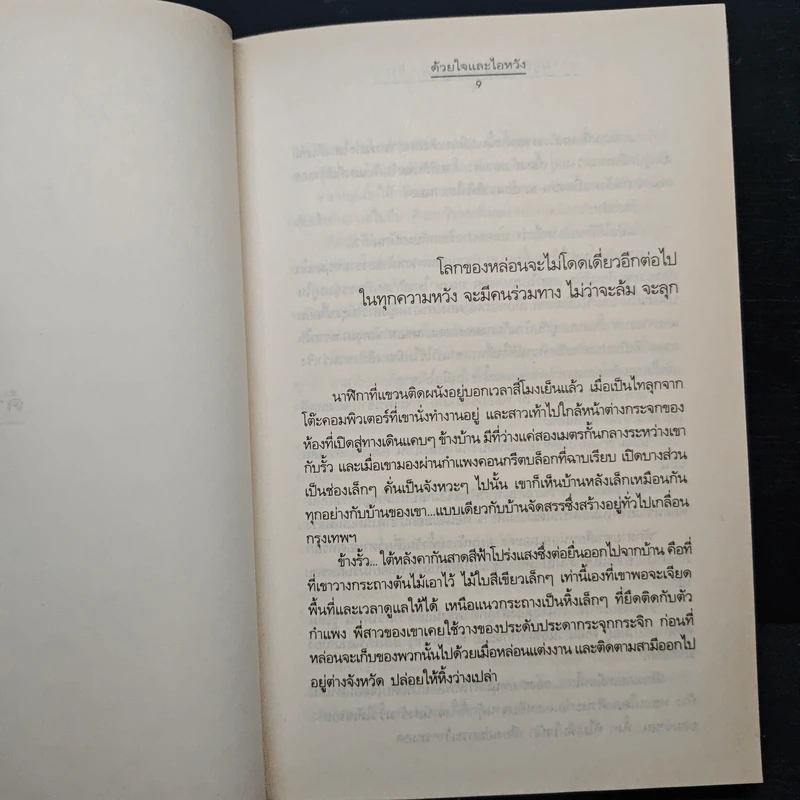 ด้วยใจและไอหวัง
๑
โลกของหล่อนจะไม่โดดเดี่ยวอีกต่อไป
ในทุกความหวัง จะมีคนร่วมทาง ไม่ว่าจะล้ม จะลุก
นาฬิกาที่แขวนติดผนังอยู่บอกเวลาสี่โมงเย็นแล้ว เมื่อเป็นไทลุกจาก
โต๊ะคอมพิวเตอร์ที่เขานั่งทำงานอยู่ และสาวเท้าไปใกล้หน้าต่างกระจกของ
ห้องที่เปิดสู่ทางเดินแคบๆ ข้างบ้าน มีที่ว่างแค่สองเมตรกั้นกลางระหว่างเขา
กับรั้ว และเมื่อเขามองผ่านกำแพงคอนกรีตบล็อกที่ฉาบเรียบ เปิดบางส่วน
เป็นช่องเล็กๆ คั่นเป็นจังหวะๆ ไปนั้น เขาก็เห็นบ้านหลังเล็กเหมือนกัน
ทุกอย่างกับบ้านของเขา...แบบเดียวกับบ้านจัดสรรซึ่งสร้างอยู่ทั่วไปเกลื่อน
กรุงเทพฯ
ข้างรั้ว... ใต้หลังคากันสาดสีฟ้าโปร่งแสงซึ่งต่อยื่นออกไปจากบ้าน คือที่
ที่เขาวางกระถางต้นไม้เอาไว้ ไม้ใบสีเขียวเล็กๆ เท่านี้เองที่เขาพอจะเจียด
พื้นที่และเวลาดูแลให้ได้ เหนือแนวกระถางเป็นหิ้งเล็กๆ ที่ยึดติดกับตัว
กำแพง พี่สาวของเขาเคยใช้วางของประดับประดากระจุกกระจิก ก่อนที่
หล่อนจะเก็บของพวกนั้นไปด้วยเมื่อหล่อนแต่งงาน และติดตามสามีออกไป
อยู่ต่างจังหวัด ปล่อยให้หิ้งว่างเปล่า